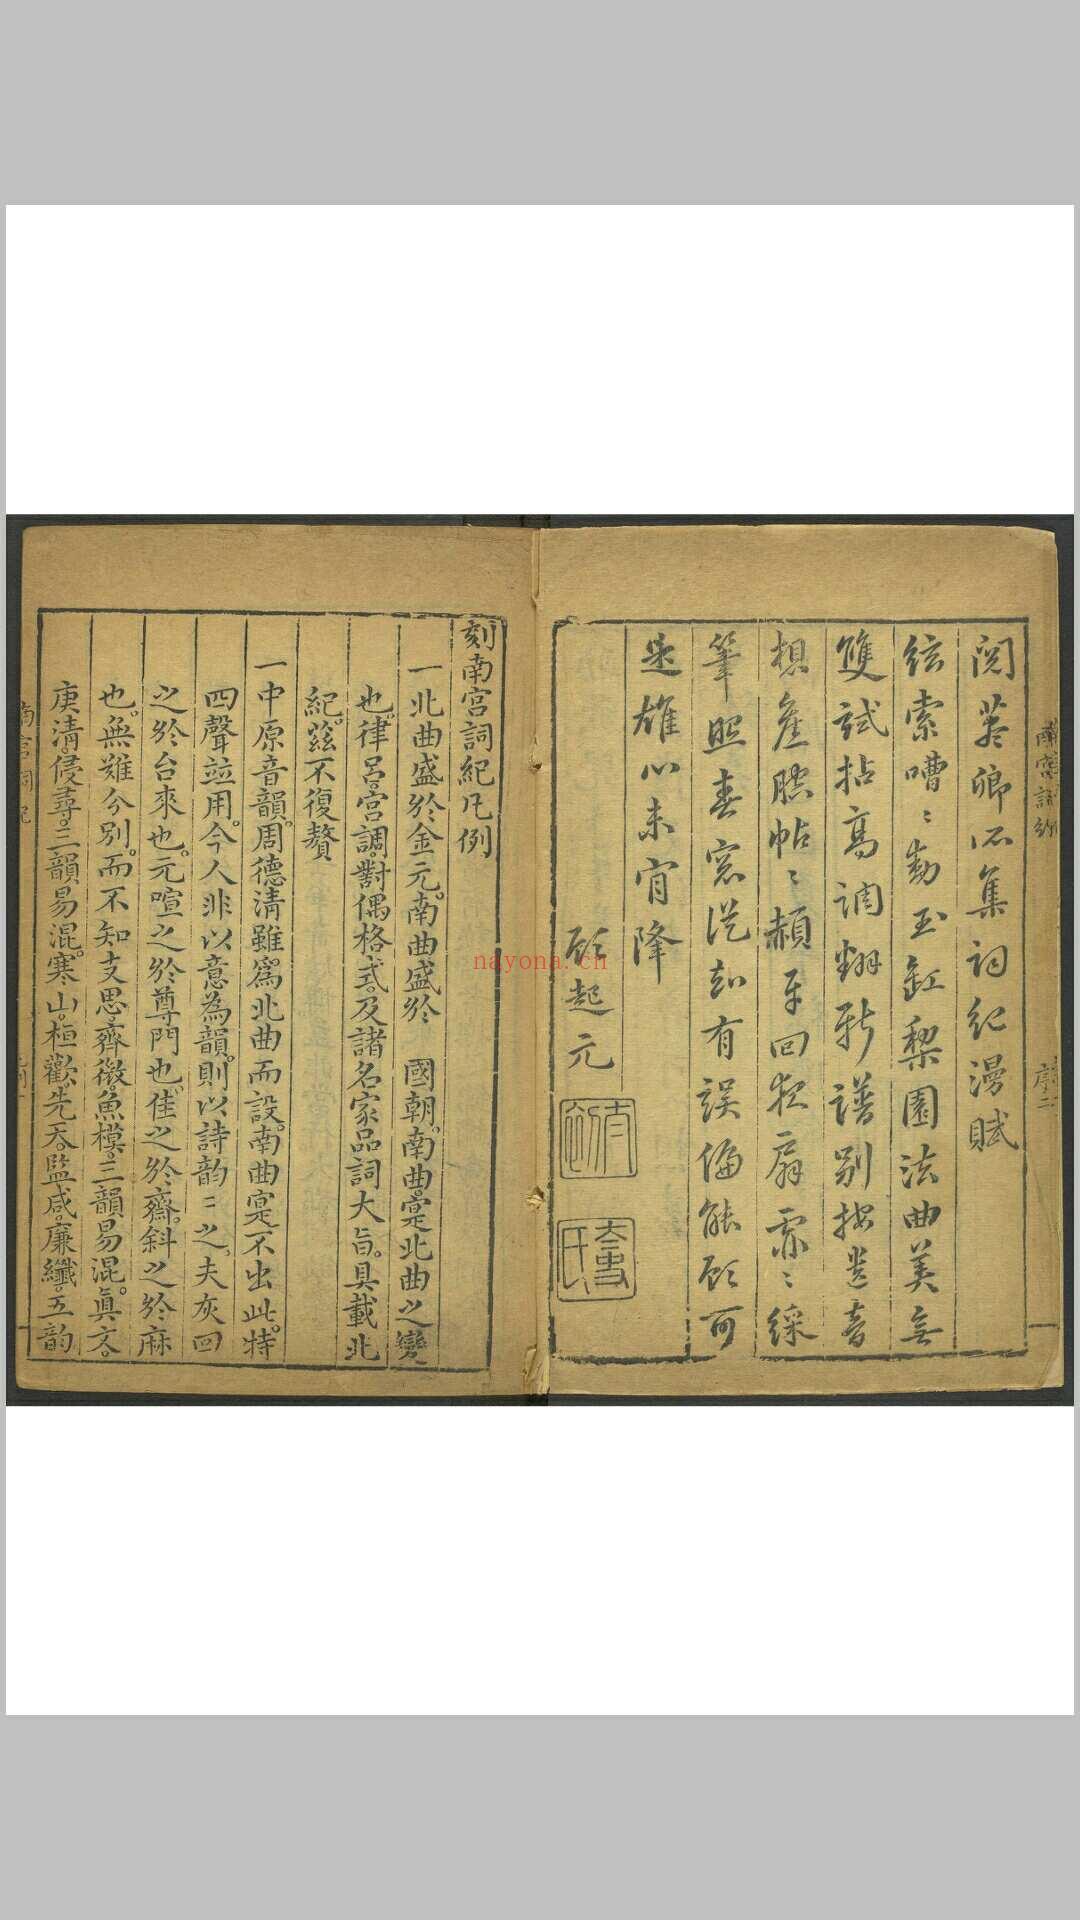 南宮詞紀
序二
閱蓋卿所集詞紀漫賦
絃索嘈〻動玉缸梨園法曲美無
雙試拈高調翻新譜別按遺音
想座牕帖〻頳牙回衣扇霏〻綵
筆照春窓從知有誤偏能顧可
是雄心未肯降
顧起元
刻南宮詞紀凡例
一北曲盛於金元。南曲盛於 國朝。南曲寔北曲之變
也。律呂宮調。對偶格式。及諸名家品詞大旨。具載北
紀。茲不復贅
一中原音韻。周德清雖為北曲而設。南曲寔不出此。特
四聲竝用。今人非以意為韻。則以詩韵〻之。夫灰回
之於台來也。元喧之於尊門也。佳之於齋。斜之於麻
也。無難今別。而不知支思。齊微。魚模。三韻易混。眞文。
庚清。侵尋。三韻易混。寒山。桓歡。先天。監咸。廉纖。五韵
南宮詞紀
nayona.cn